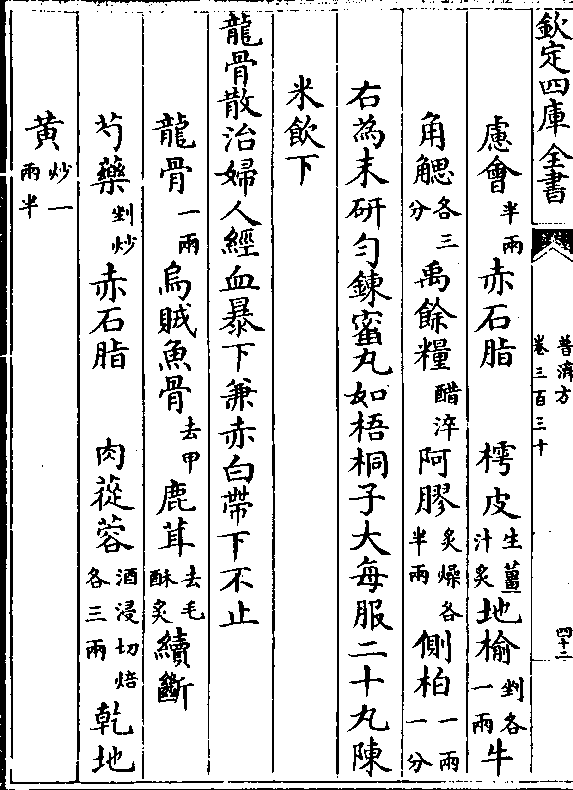 欽定四庫全書
普濟方
卷三百三十
四十二
慮會半兩赤石脂 樗皮生薑汁炙地榆剉各一兩牛
角䚡各三分禹餘糧醋淬阿膠炙燥各半兩側柏一兩一分
右為末研勻鍊蜜丸如梧桐子大每服二十丸陳
米飲下
龍骨散治婦人經血暴下兼赤白帶下不止
龍骨一兩烏賊魚骨去甲鹿茸去毛酥炙續斷
芍藥剉炒赤石脂 肉蓯蓉酒浸切焙各三兩乾地
黄炒一兩半